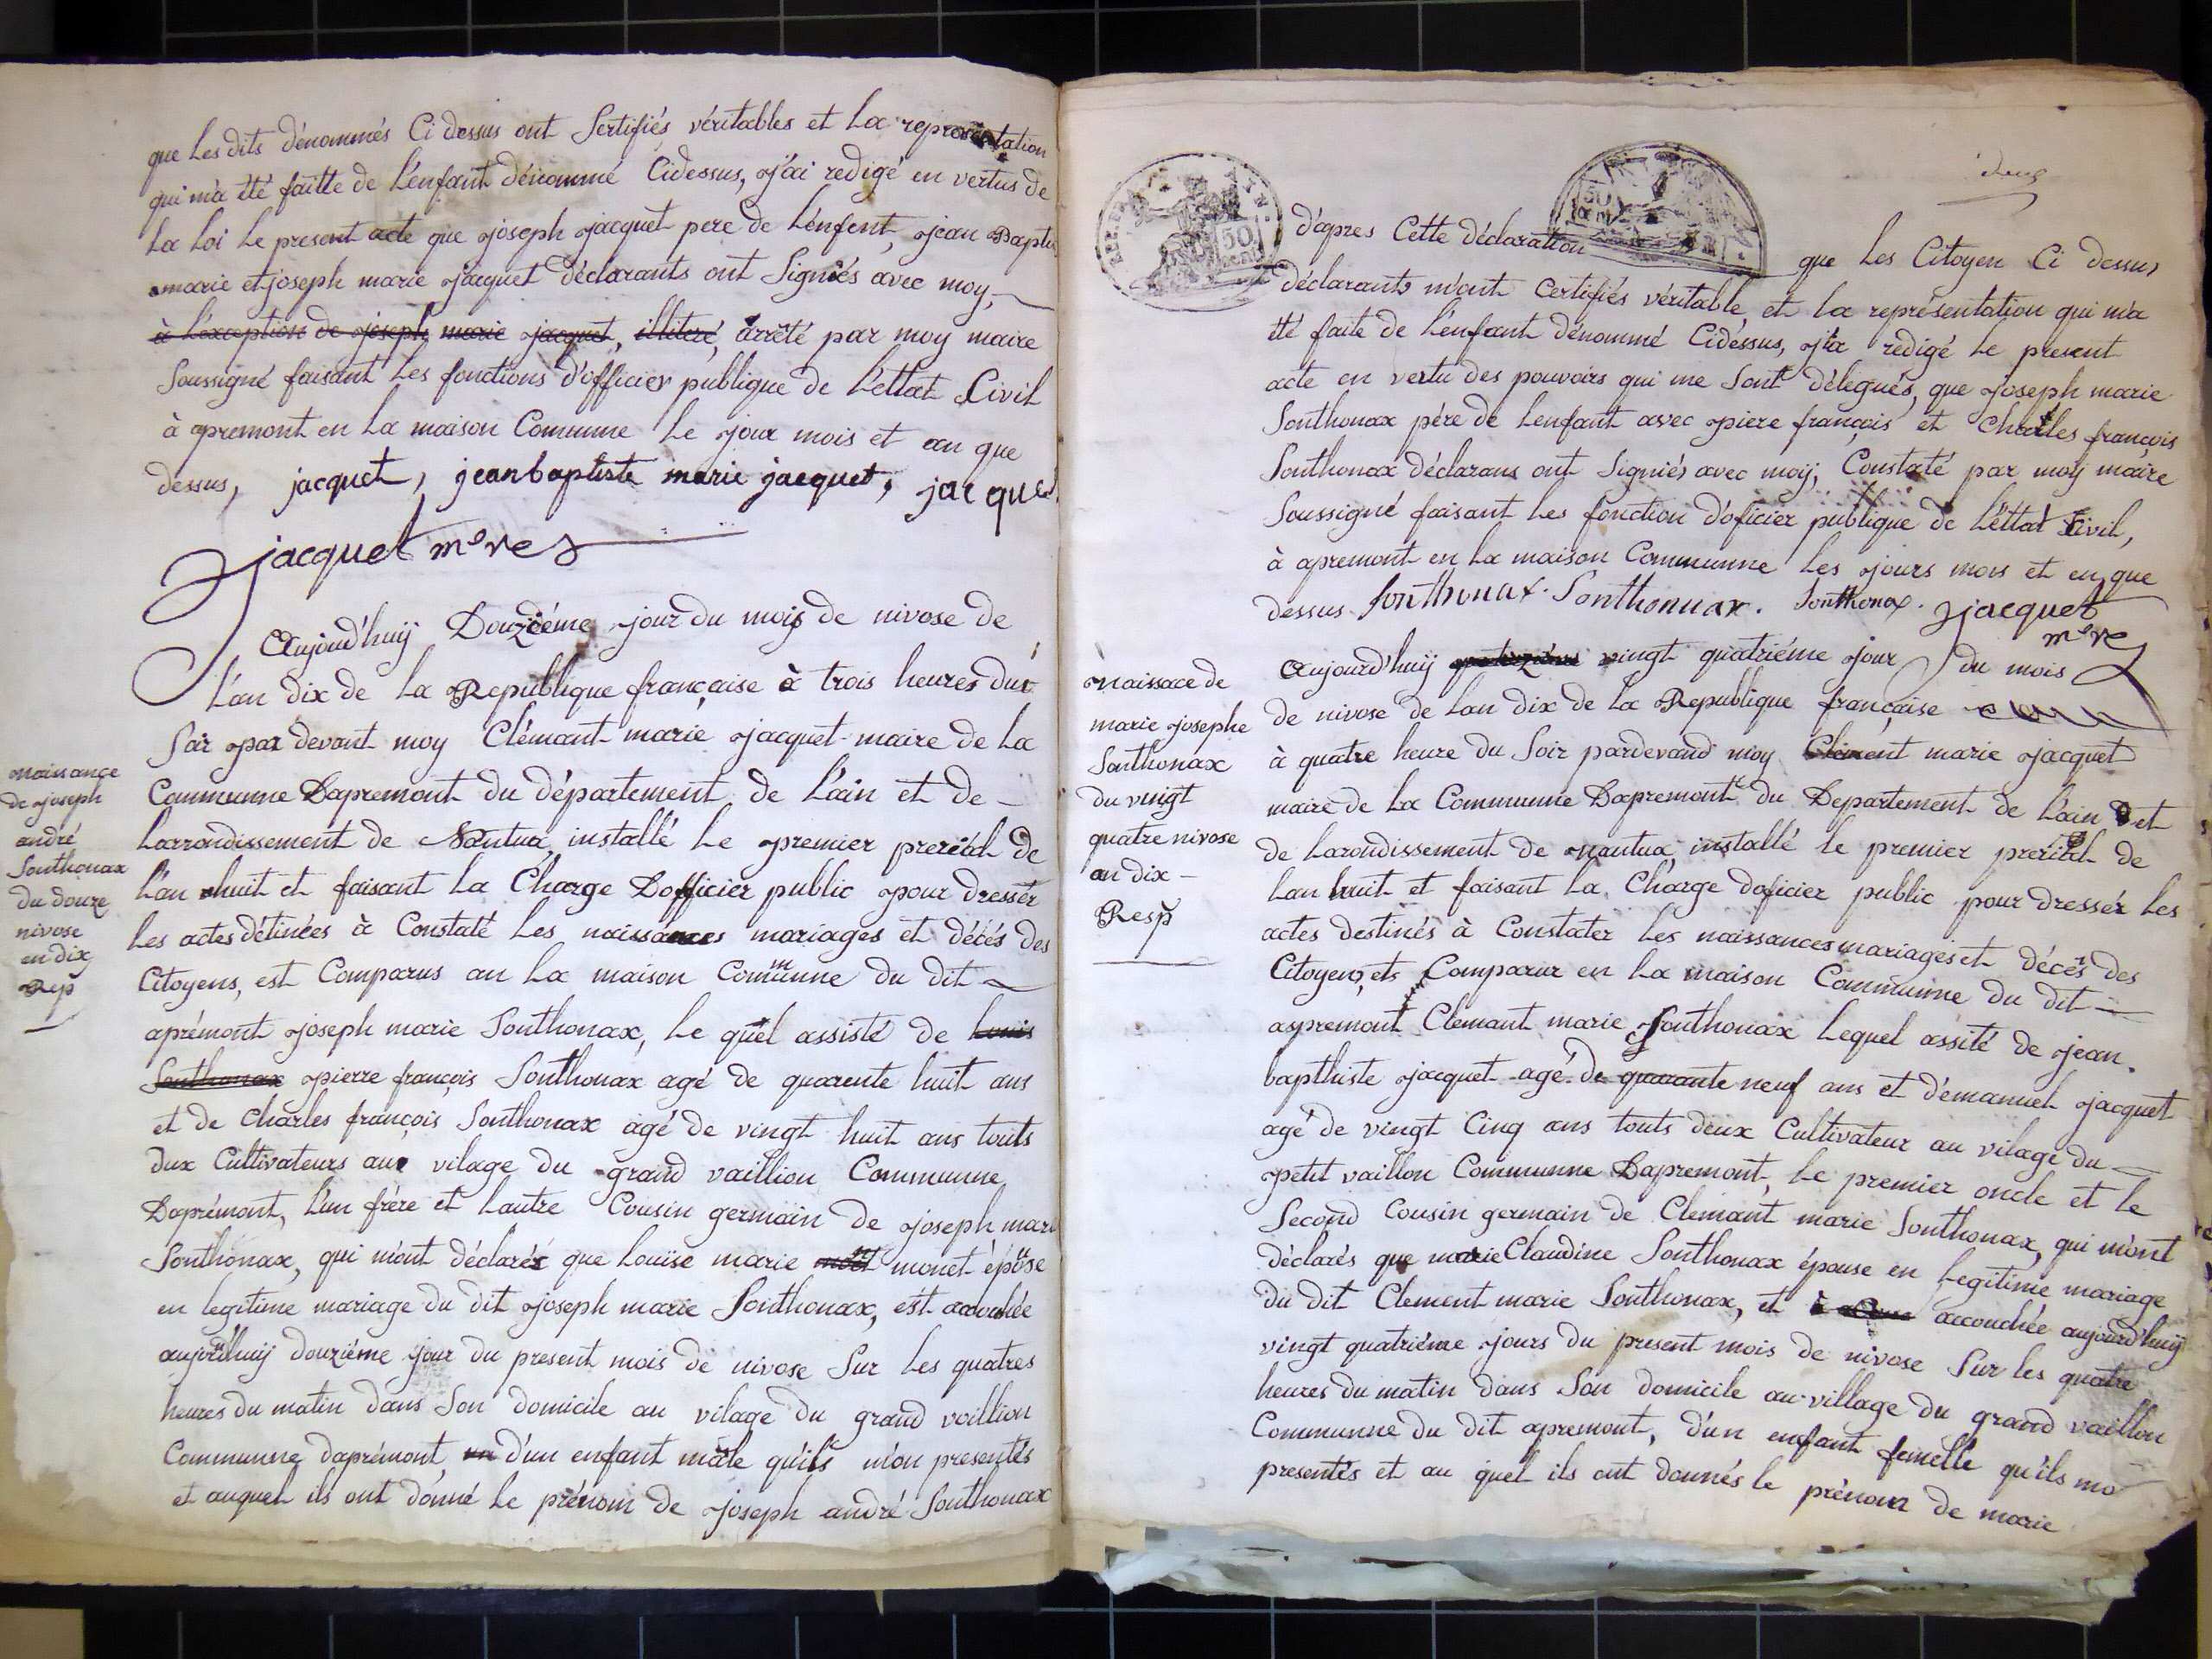 que les dits dénommés Ci dessus ont Sertifiés véritables et la representation
qui m'a été faitte de l'enfant dénommé Cidessus, j'ai redigé en vertus de
la Loi le present acte que joseph jacquet pere de l'enfent, jean Baptis
marie et joseph marie jacquet déclarants ont Signiés avec moy,
à l'exception de joseph marie jacquet, illiteré, arrêté par moy maire
Soussigné faisant les fonctions d'officier publique de l'ettat Civil
à apremont en la maison Comunne le jour mois et an que
dessus, jacquet, jean baptiste marie jacquet, jacquet
jacquet mere
Aujourd'huij Douziéme jour du mois de nivose de
l'an dix de la Republique française à trois heures dus
Soir par devant moy Clémant marie jacquet maire de la
Communne Dapremont du département de l'ain et de
larrondissement de Nantua, installé le premier preréal de
l'an huit et faisant la Charge Dofficier public pour dresser
les actes détinées à Constaté les naissances mariages et décés des
Citoyens, est Comparus an la maison Communne du dit
aprémont joseph marie Sonthonax, le quel assisté de louis
Sonthonax pierre françois Sonthonax agé de quarente huit ans
et de Charles françois Sonthonax agé de vingt huit ans touts
dux Cultivateurs aux vilage du grand vaillion Communne
Daprémont, l'un frére et lautre Cousin germain de joseph mari
Sonthonax, qui m'ont déclarés que Louise marie monet épouse
en legitime mariage du dit joseph marie Sonthonax, est acouchée
aujourd'huij douziéme jour du present mois de nivose Sur les quatres
heures du matin dans Son domicile au vilage du grand voillion
Communne daprémont, un d'un enfant mâle qu'ils m'on presentés
et auquel ils ont donné le prénom de joseph andré Sonthonax
naissance
de joseph
andré
Sonthonax
du douze
nivose
en dix
Rep
deux
d'apres Cette déclaration que les Citoyen Ci dessus
déclarants m'ont Certifiés véritable, et la représentation qui m'a
été faite de l'enfant dénommé Cidéssus, j'ia redigé le present
acte en vertu des pouvoirs qui me Sont délegués, que joseph marie
Sonthonax pére de lenfant avec piere françois et Charles françois
Sonthonax déclarans ont Signiés avec moij, Constaté par moy maire
Soussigné faisant les fonction d'oficier publique de l'éttat Civil,
à apremont en la maison Communne les jours mois et en que
dessus Sonthonax. Sonthonnax. Sonthonax. jacquet
mere
Aujourd'huij quatorziéme vingt quatriéme jour du mois
de nivose de lan dix de la Republique française
à quatre heure du Soir pardevand moy Clément marie jacquet
maire de la Communne Dapremont du Departement de l'ain et
de larondissement de nantua, installé le premier preriéal de
lan huit et faisant la Charge doficier public pour dressér les
actes destinés à Constater les naissances mariages et décés des
Citoyens, ets Comparur en la maison Communne du dit
aspremont Clemant marie Sonthonax lequel assité de jean
bapthiste jacquet agé de quarante neuf ans et d'émanuel jacquet
agé de vingt Cinq ans touts deux Cultivateur au vilage du
petit vaillon Communne Dapremont, le premier oncle et le
Second Cousin germain de Clemant marie Sonthonax, qui m'ont
déclarés que marie Claudine Sonthonax épouse en legitime mariage
du dit Clement marie Sonthonax, et accouchée aujourd'huij
vingt quatriéme jours du present mois de nivose Sur les quatre
heures du matin dans Son domicile au village du grand vaillon
Communne du dit apremont, d'un enfant femelle qu'ils mo
presentés et au quel ils ont donnés le prénom de marie
naissace de
marie josephe
Sonthonax
du vingt
quatre nivose
an dix
Resp